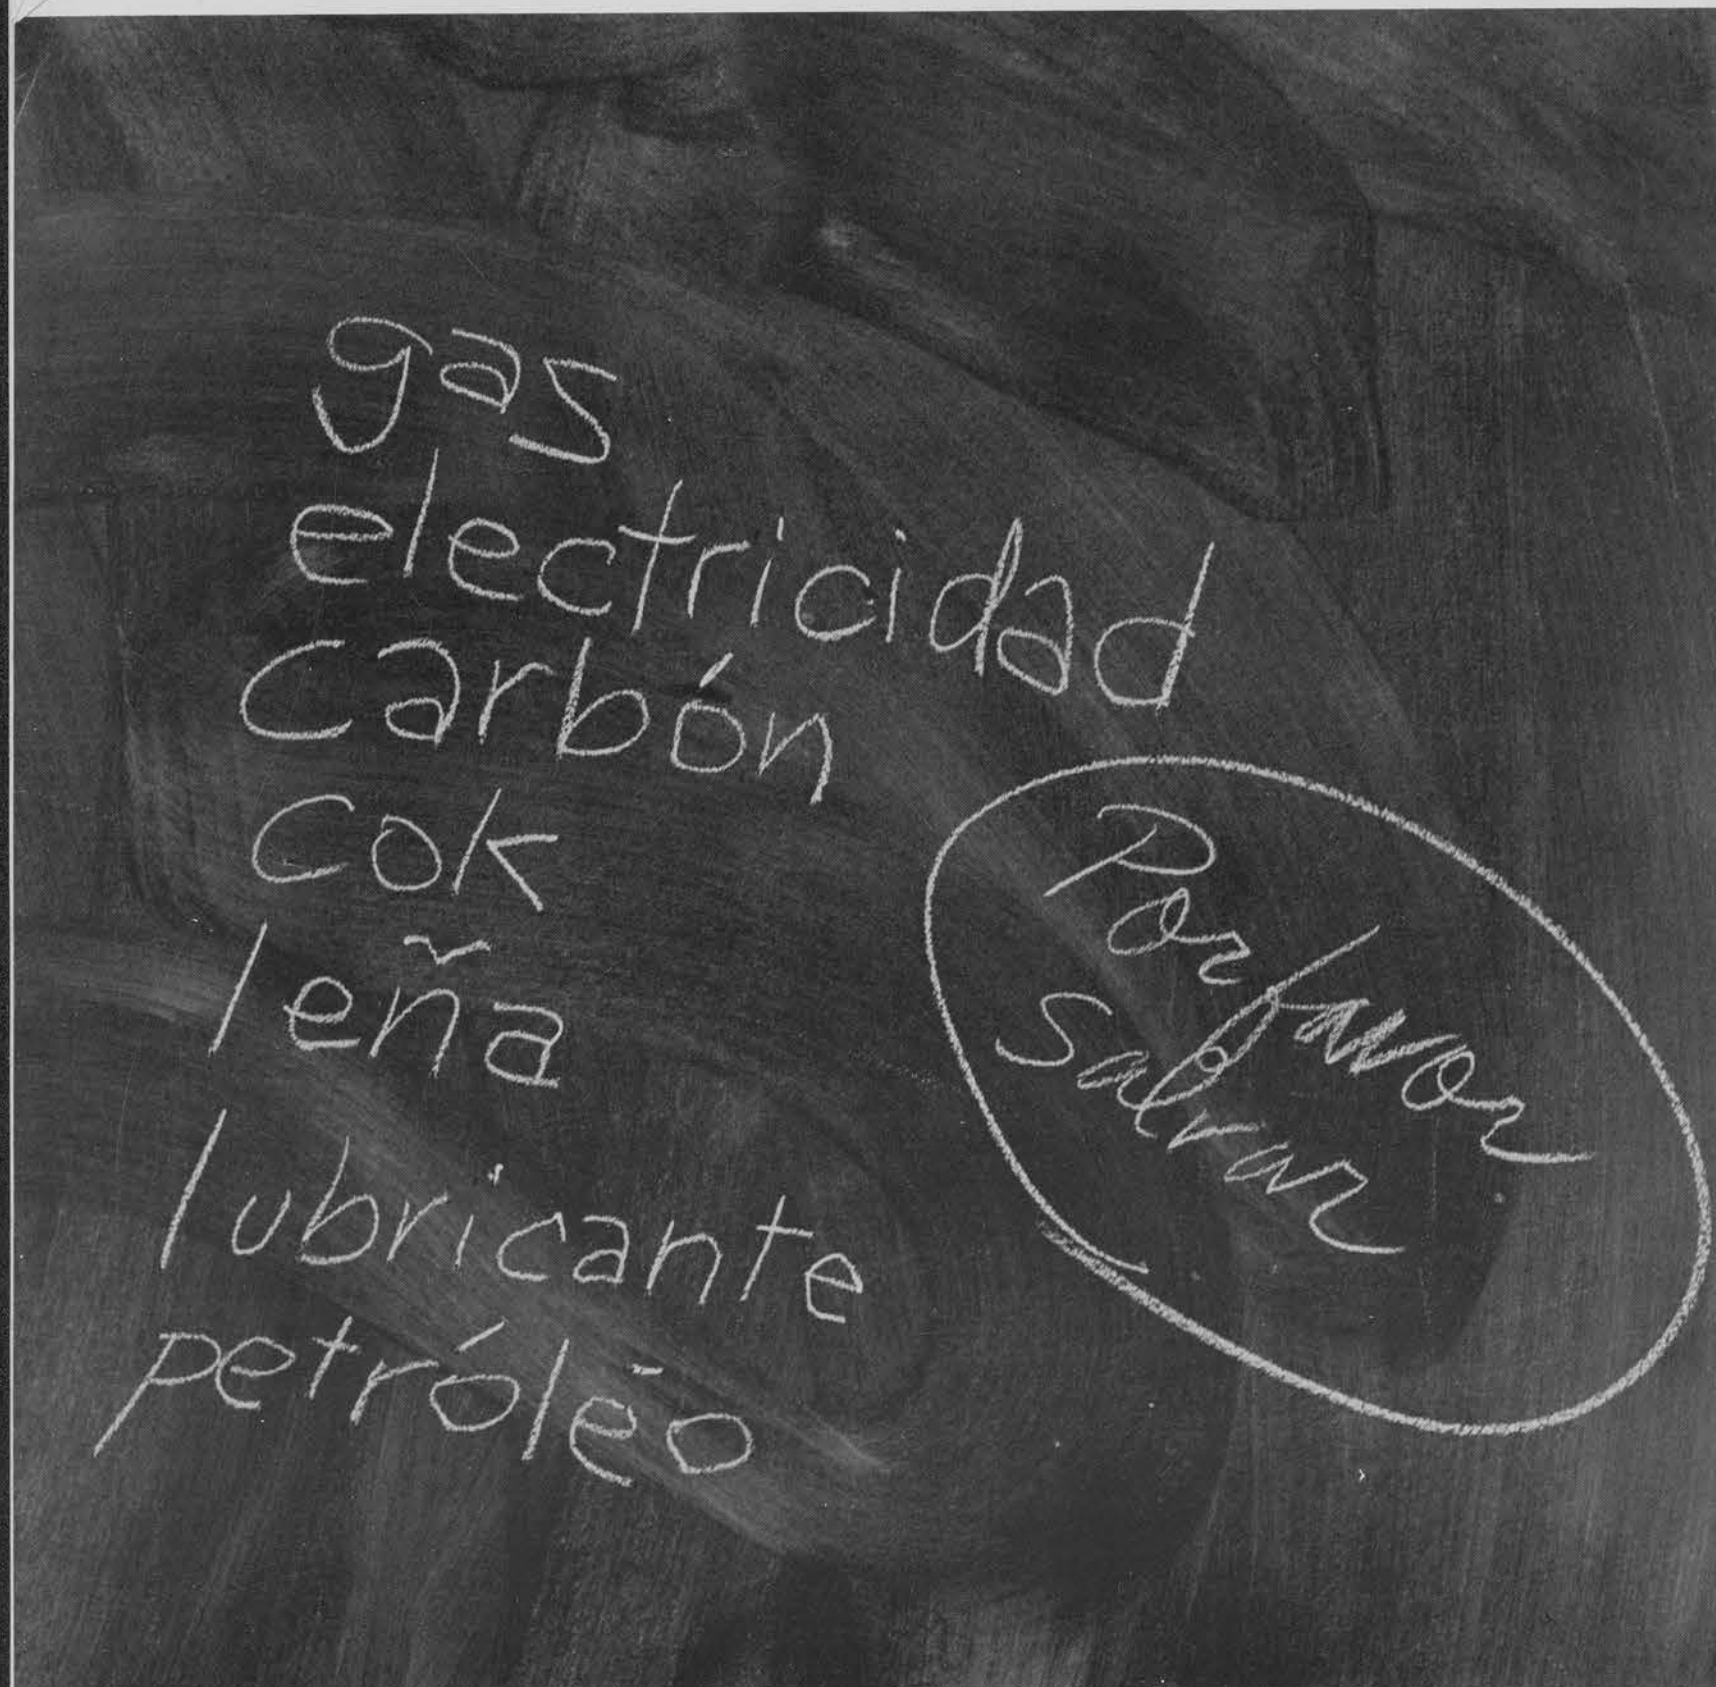 gas
electricidad
carbón
cok
leña
lubricante
petrólēo
Por favor
Salvar